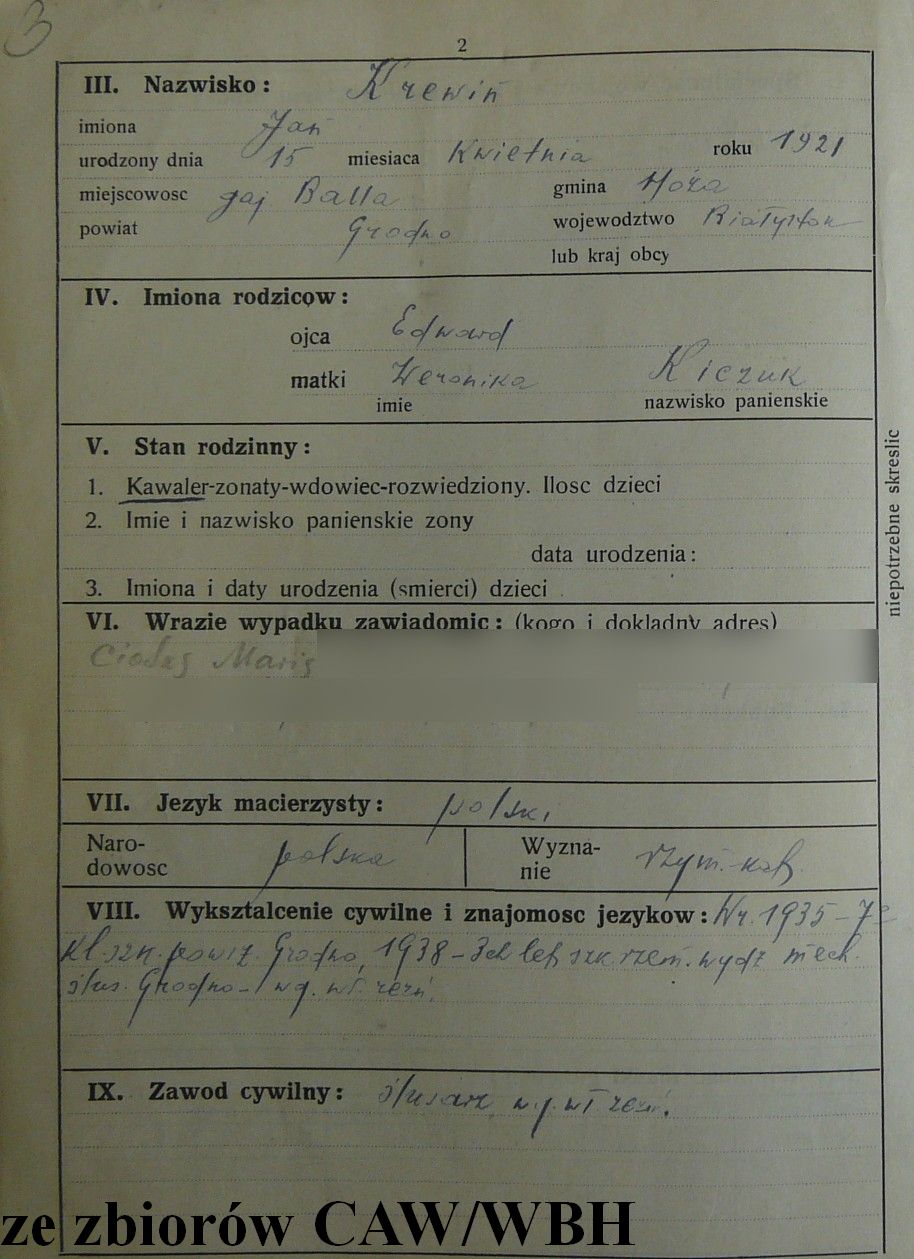 3
2
III. Nazwisko: Krewiń
imiona Jan
urodzony dnia 15 miesiaca Kwietnia roku 1921
miejscowosc gaj Balla gmina Hoża
powiat Grodno wojewodztwo Białystok
lub kraj obcy
IV. Imiona rodzicow:
ojca Edward
matki Weronika Kiczuk
imie nazwisko panienskie
V. Stan rodzinny:
1. Kawaler-zonaty-wdowiec-rozwiedziony. Ilosc dzieci
2. Imie i nazwisko panienskie zony
data urodzenia:
3. Imiona i daty urodzenia (smierci) dzieci
niepotrzebne skreslic
VI. Wrazie wypadku zawiadomic: (kogo i dokladny adres)
VII. Jezyk macierzysty: polski
Naro-
dowosc polska
Wyzna-
nie rzym.-kat.
VIII. Wyksztalcenie cywilne i znajomosc jezykow: W r. 1935 - 7
kl. szk. powsz. Grodno, 1938 - 3ch let. szk. rzem. wydz mech.
ślus. Grodno - wg. wł. zezń.
IX. Zawod cywilny: ślusarz wg. wł zezń.
ze zbiorów CAW/WBH